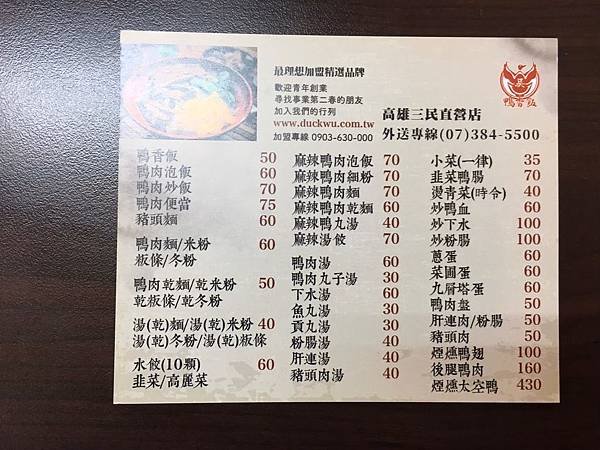 最理想加盟精選品牌
歡迎青年創業
尋找事業第二春的朋友
加入我們的行列
www.duckwu.com.tw
加盟專線 0903-630-000
鴨香飯
高雄三民直營店
外送專線(07)384-5500
鴨香飯 50
鴨肉泡飯 60
鴨肉炒飯 70
鴨肉便當 75
豬頭麵 60
鴨肉麵/米粉 60
粄條/冬粉
鴨肉乾麵/乾米粉 50
乾粄條/乾冬粉
湯(乾)麵/湯(乾)米粉 40
湯(乾)冬粉/湯(乾)粄條
水餃(10顆) 60
韭菜/高麗菜
麻辣鴨肉泡飯 70
麻辣鴨肉細粉 70
麻辣鴨肉麵 70
麻辣鴨肉乾麵 60
麻辣鴨丸湯 40
麻辣湯餃 70
鴨肉湯 60
鴨肉丸子湯 30
下水湯 60
魚丸湯 30
貢丸湯 30
粉腸湯 40
肝連湯 40
豬頭肉湯 40
小菜(一律) 35
韭菜鴨腸 70
燙青菜(時令) 40
炒鴨血 60
炒下水 100
炒粉腸 100
蔥蛋 60
菜圃蛋 60
九層塔蛋 60
鴨肉盤 50
肝連肉/粉腸 50
豬頭肉 50
煙燻鴨翅 100
後腿鴨肉 160
煙燻太空鴨 430